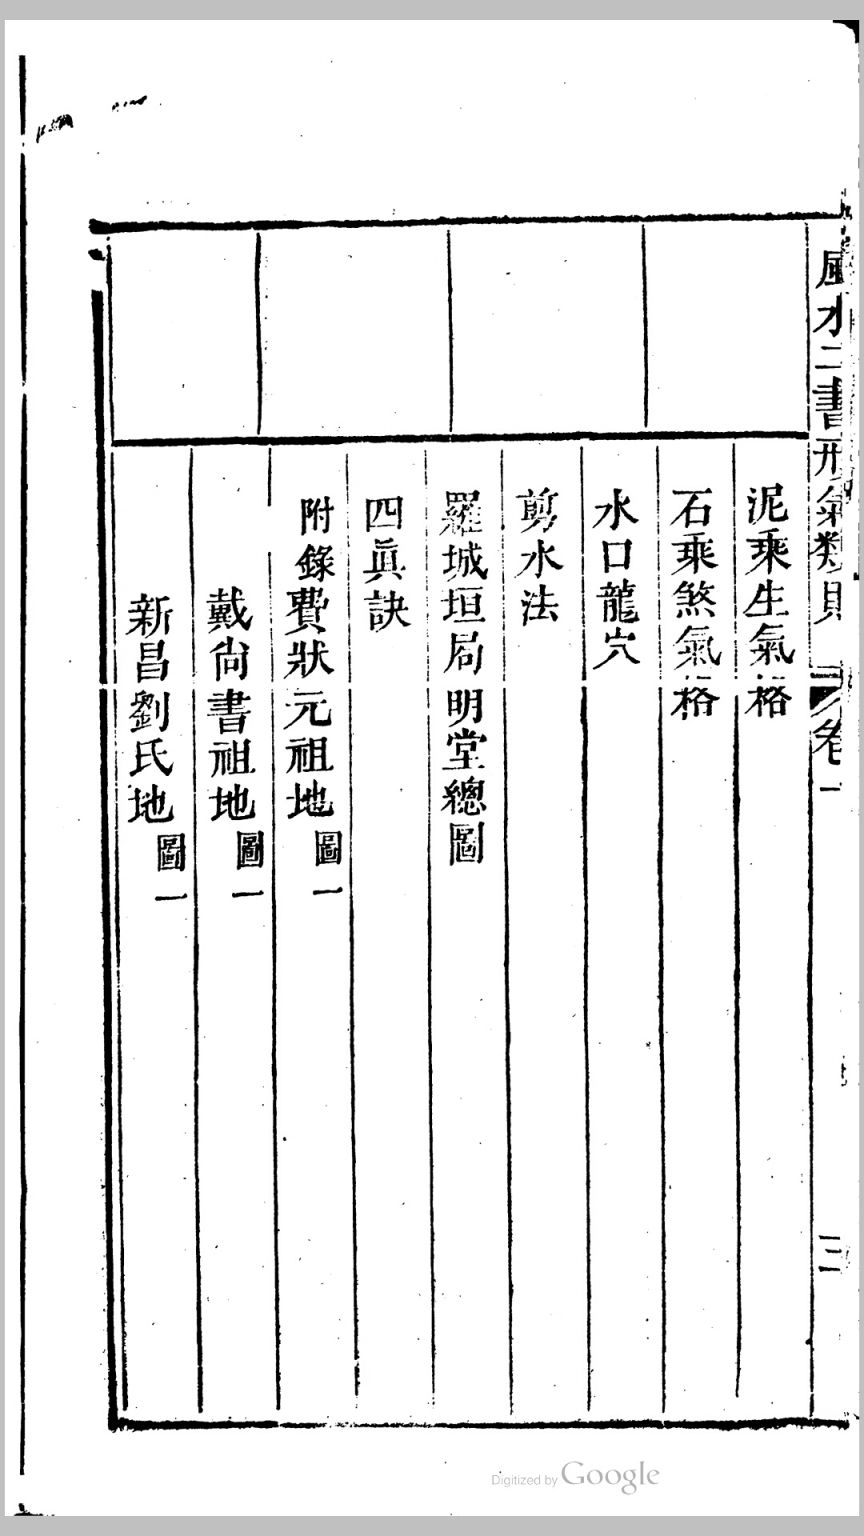 風水二書形氣類則
卷一
三
泥乘生氣格
石乘煞氣格
水口龍穴
剪水法
羅城垣局明堂總圖
四眞訣
附錄費狀元祖地圖一
戴尙書祖地圖一
新昌劉氏地圖一
Digitized by Google